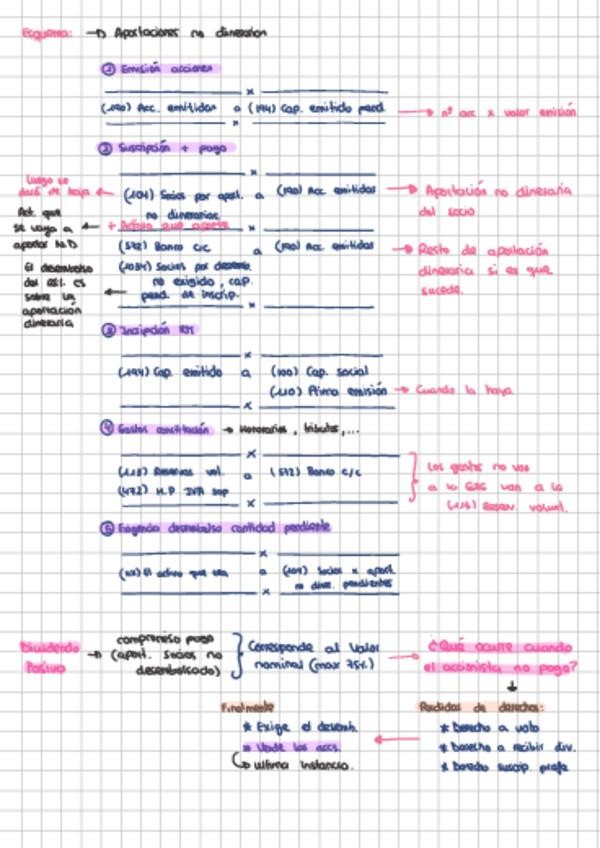 Esquema: → Aportaciones no dineraria
① Emisión acciones
x
(190) Acc. emitidas a (194) Cap. emitido pend. → nº acc x valor emisión
x
② Suscripción + pago
x
Luego se
dará de baja ← (104) Socios por aport. a (190) Acc. emitidas → Aportación no dineraria
no dinerarias
del socio
Act. que
se vaya a ← + Activo que aporte
aportar N.D
(572) Banco c/c a (190) Acc. emitidas → Resto de aportación
dineraria si es que
sucede.
(1034) Socios por desemb.
no exigido, cap.
pend. de inscrip.
El desembolso
del
es
sobre la
aportación
dineraria
x
③ Inscripción RM
x
(194) Cap. emitido a (100) Cap. social
(110) Prima emisión → Cuando la haya
x
④ Gastos constitución → Honorarios, tributos,...
x
(113) Reservas vol. a (572) Banco c/c
(472) H.P IVA sop
x
Los gastos no van
a la
van a la
(113) Reserv. volunt.
⑤ Exigencia desembolso cantidad pendiente
x
(xx) El activo que sea a (104) Socios x aport.
no dine. pendientes
x
Dividendo
Pasivo →
compromiso pago
(aport. socios no
desembolsado)
Corresponde al valor
nominal (max 75%) →
¿Qué ocurre cuando
el accionista no paga?
Perdidas de derechos:
* Derecho a voto
* Derecho a recibir div.
* Derecho suscrip. prefe.
Finalmente
* Exige el desemb.
* Vende las accs.
ultima instancia.